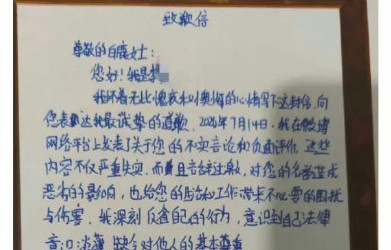 致歉信
尊敬的白鹿女士：
您好！我是
我怀着无比愧疚和懊悔的心情写下这封信，向
您表达我最诚挚的道歉。2024年7月14日，我在微博
网络平台上发表了关于您的不实言论和负面评价，这些
内容不仅严重失实，而且言辞过激，对您的名誉造成
恶劣的影响，也给您的生活和工作带来不必要的困扰
与伤害。我深刻反省自己的行为，意识到自己法律
意识淡薄，缺乏对他人的基本尊重